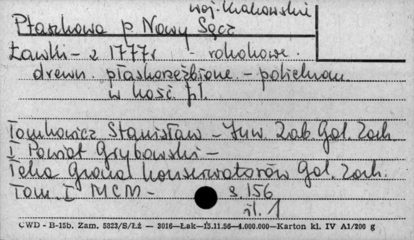 woj. Krakowskie
Ptaszkowa p Nowy Sącz
Ławki - z 1777 r rokokowe.
drewn. płaskorzeźbione - polichrom
w kość. fil.
Tomkowicz Stanisław - Inw. Zab. Gal. Zach.
I Powiat Grybowski -
Teka Grona Konserwatorów Gal. Zach.
Tom. I MCM - s. 156
il. 1
CWD - B-15b. Zam. 5823/S/Łż — 3016—Łak—15.11.56—4.000.000—Karton kl. IV A1/200 g